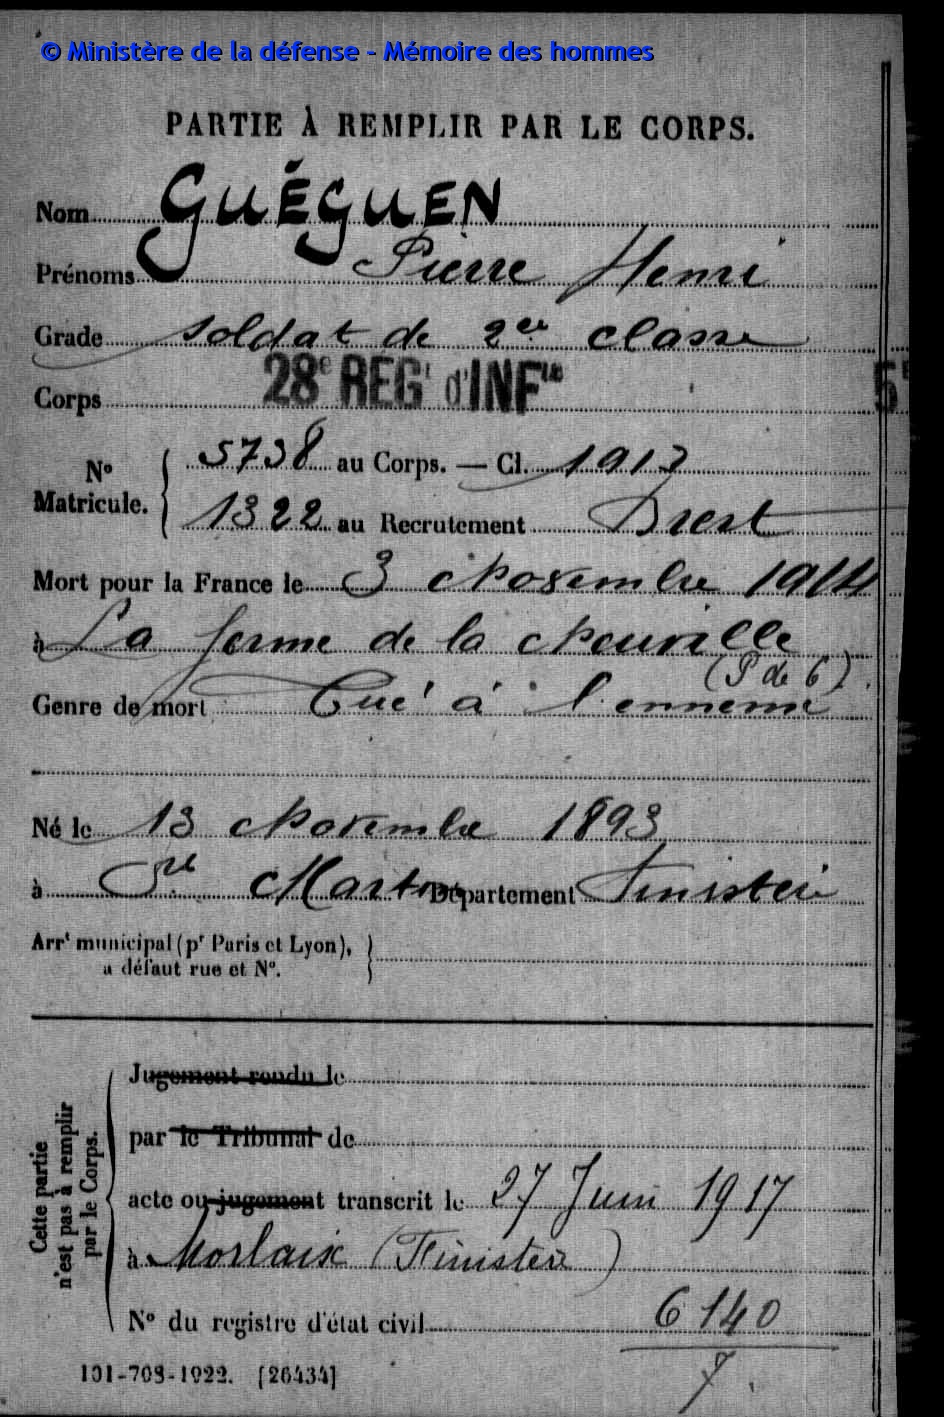 © Ministère de la défense - Mémoire des hommes
PARTIE À REMPLIR PAR LE CORPS.
Nom GUÉGUEN
Prénoms Pierre Henri
Grade soldat de 2e classe
Corps 28e REGt d'INFie
No Matricule. 5738 au Corps. — Cl. 1913
1322 au Recrutement Brest
Mort pour la France le 3 Novembre 1914
à La ferme de la Neuville
(P de C)
Genre de mort Tué à l'ennemi
Né le 13 Novembre 1893
à St Martin Département Finistère
Arrt municipal (pr Paris et Lyon),
à défaut rue et No.
Cette partie
n'est pas à remplir
par le Corps.
Jugement rendu le
par le Tribunal de
acte ou jugement transcrit le 27 Juin 1917
à Morlaix (Finistère)
No du registre d'état civil 6140
7
101-708-1922. [26434]